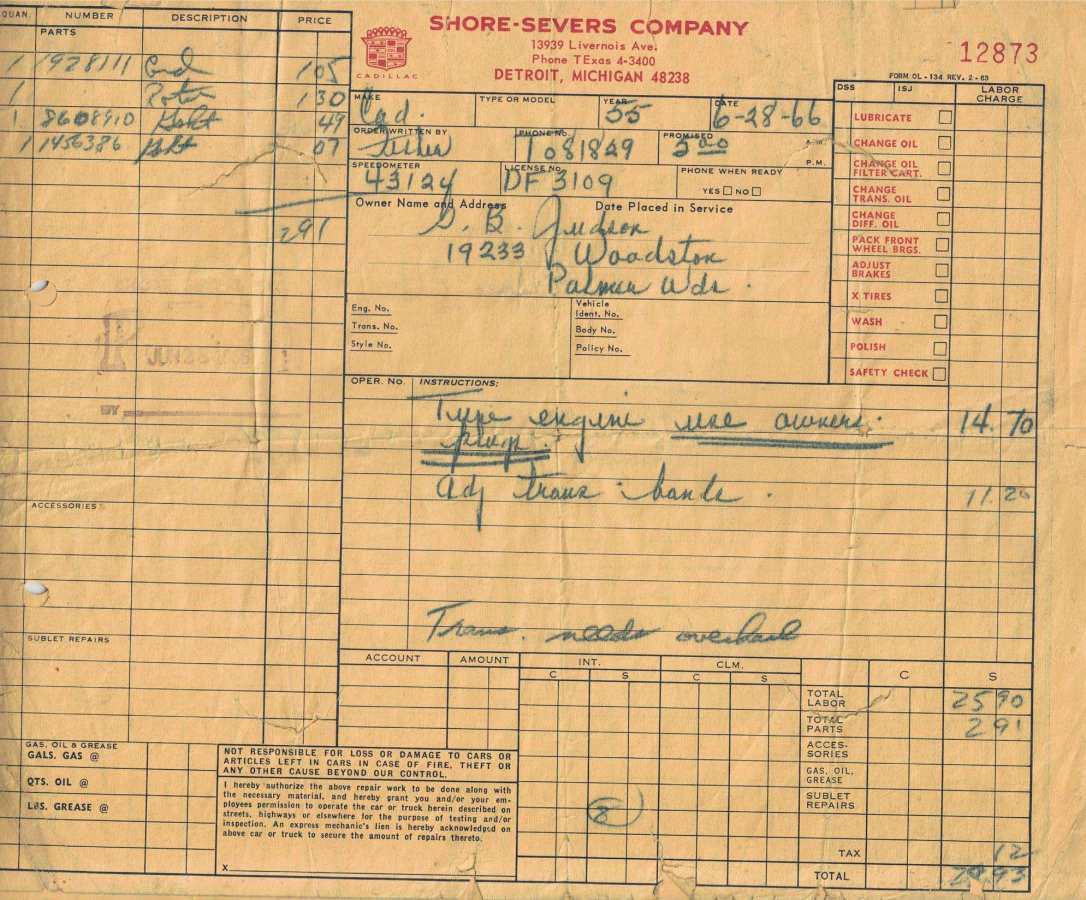 QUAN. NUMBER DESCRIPTION PRICE
PARTS
1 1928111 Cond 1 05
1 Rotor 1 30
1 8608910 Gskt 49
1 1456386 Gskt 07
2 91
ACCESSORIES
SUBLET REPAIRS
GAS, OIL & GREASE
GALS. GAS @
QTS. OIL @
LBS. GREASE @
SHORE-SEVERS COMPANY
13939 Livernois Ave.
Phone TExas 4-3400
DETROIT, MICHIGAN 48238
CADILLAC
12873
FORM OL-134 REV. 2-63
MAKE Cad. TYPE OR MODEL YEAR 55 DATE 6-28-66
ORDER WRITTEN BY PHONE NO. To 81849 PROMISED 5 00 A.M. P.M.
SPEEDOMETER 43124 LICENSE NO. DF 3109 PHONE WHEN READY
YES NO
Owner Name and Address Date Placed in Service
D. B. Judson
19233 Woodston
Palmer Wds.
Eng. No.
Trans. No.
Style No.
Vehicle
Ident. No.
Body No.
Policy No.
DSS ISJ LABOR CHARGE
LUBRICATE
CHANGE OIL
CHANGE OIL
FILTER CART.
CHANGE
TRANS. OIL
CHANGE
DIFF. OIL
PACK FRONT
WHEEL BRGS.
ADJUST
BRAKES
X TIRES
WASH
POLISH
SAFETY CHECK
OPER. NO. INSTRUCTIONS:
Tune engine use owners 14.70
plugs.
Adj trans bands. 11.20
Trans. needs overhaul
ACCOUNT AMOUNT INT. CLM.
C S C S C S
8
TOTAL LABOR 25 90
TOTAL PARTS 2 91
ACCES-
SORIES
GAS, OIL,
GREASE
SUBLET
REPAIRS
TAX 12
TOTAL 28 93
NOT RESPONSIBLE FOR LOSS OR DAMAGE TO CARS OR
ARTICLES LEFT IN CARS IN CASE OF FIRE, THEFT OR
ANY OTHER CAUSE BEYOND OUR CONTROL.
I hereby authorize the above repair work to be done along with
the necessary material, and hereby grant you and/or your em-
ployees permission to operate the car or truck herein described on
streets, highways or elsewhere for the purpose of testing and/or
inspection. An express mechanic's lien is hereby acknowledged on
above car or truck to secure the amount of repairs thereto.
X